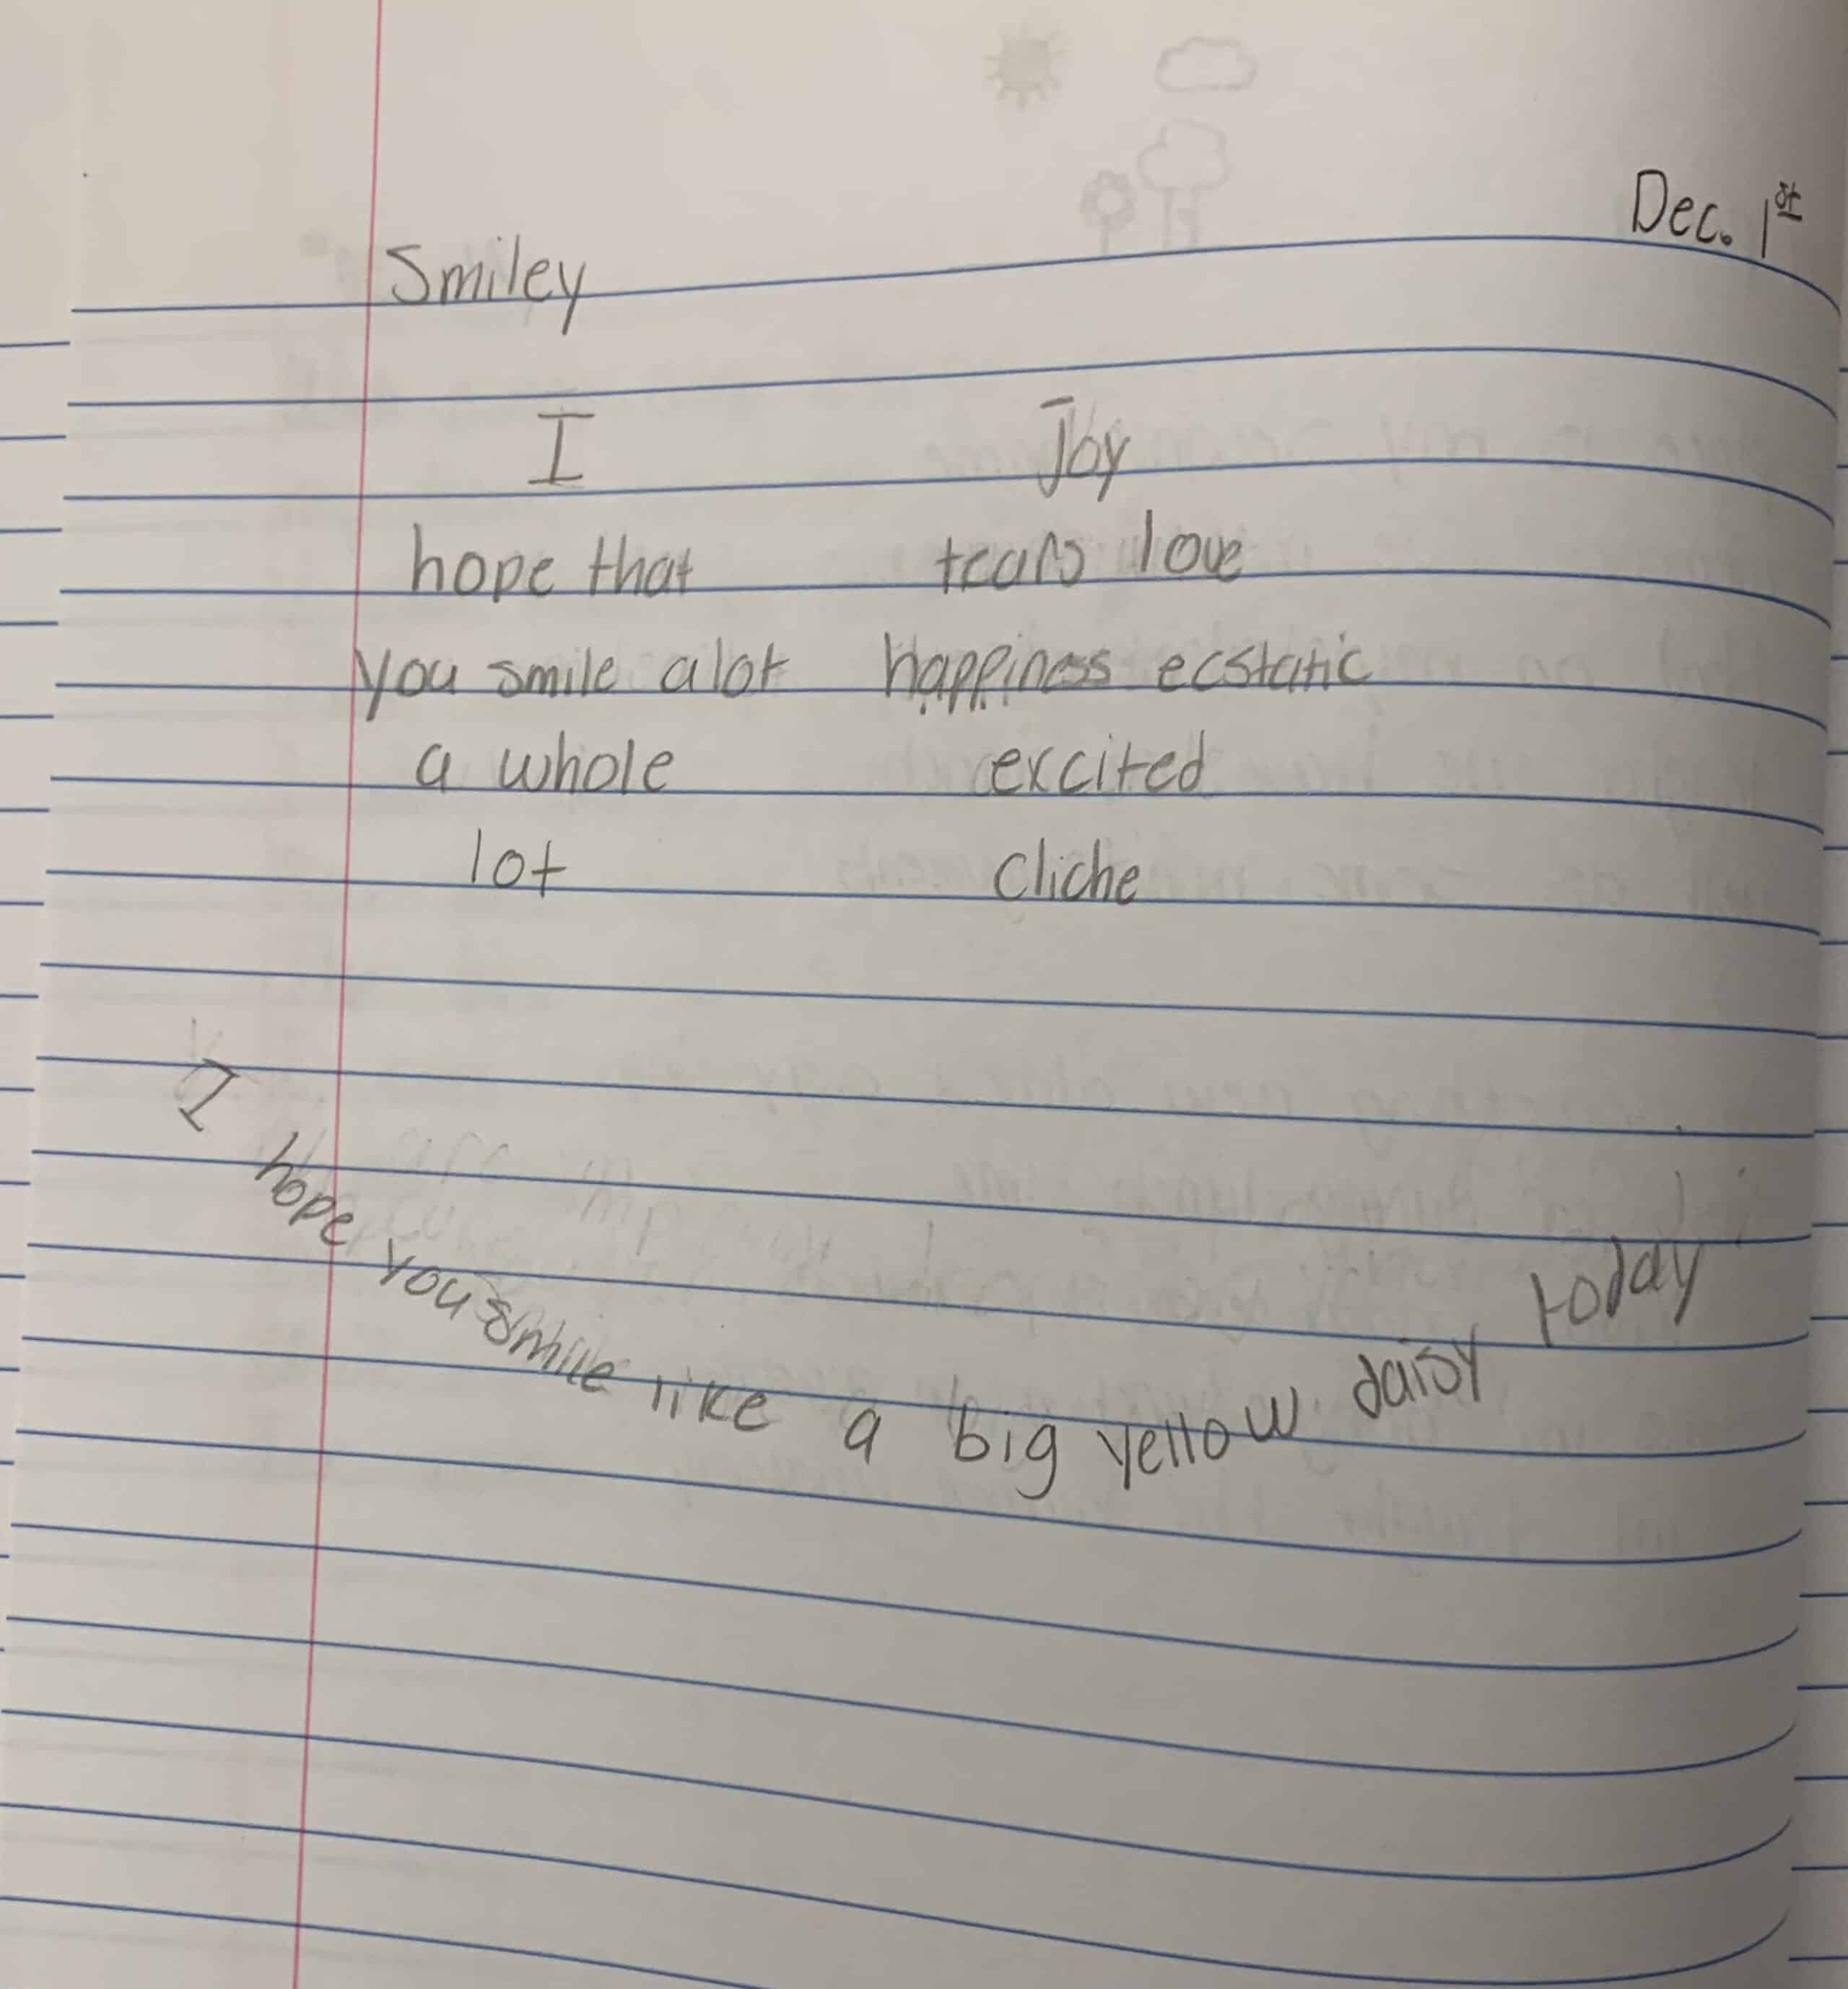 Dec. 1st
Smiley
I
hope that
you smile alot
a whole
lot
Joy
tears love
happiness ecstatic
excited
cliche
I hope you smile like a big yellow daisy today